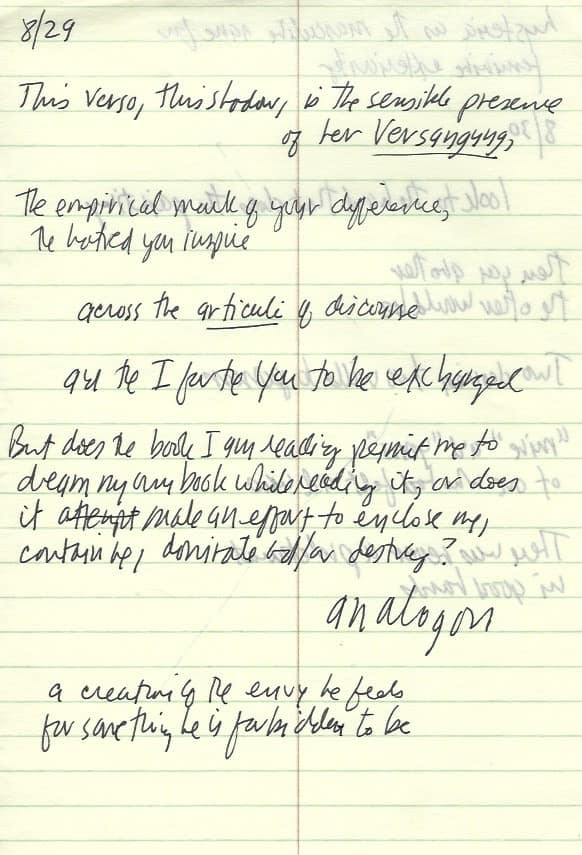 8/29
This verso, this shadow, is the sensible presence
of her Versagung,
The empirical mark of your difference,
The hatred you inspire
across the articuli of discourse
and the I for the You to be exchanged
But does the book I am reading permit me to
dream my own book while reading it, or does
it attempt make an effort to enclose me,
contain me, dominate and/or destroy?
analogon
a creation of the envy he feels
for something he is forbidden to be
hysteria as the masculine name for
feminine exteriority
8/30